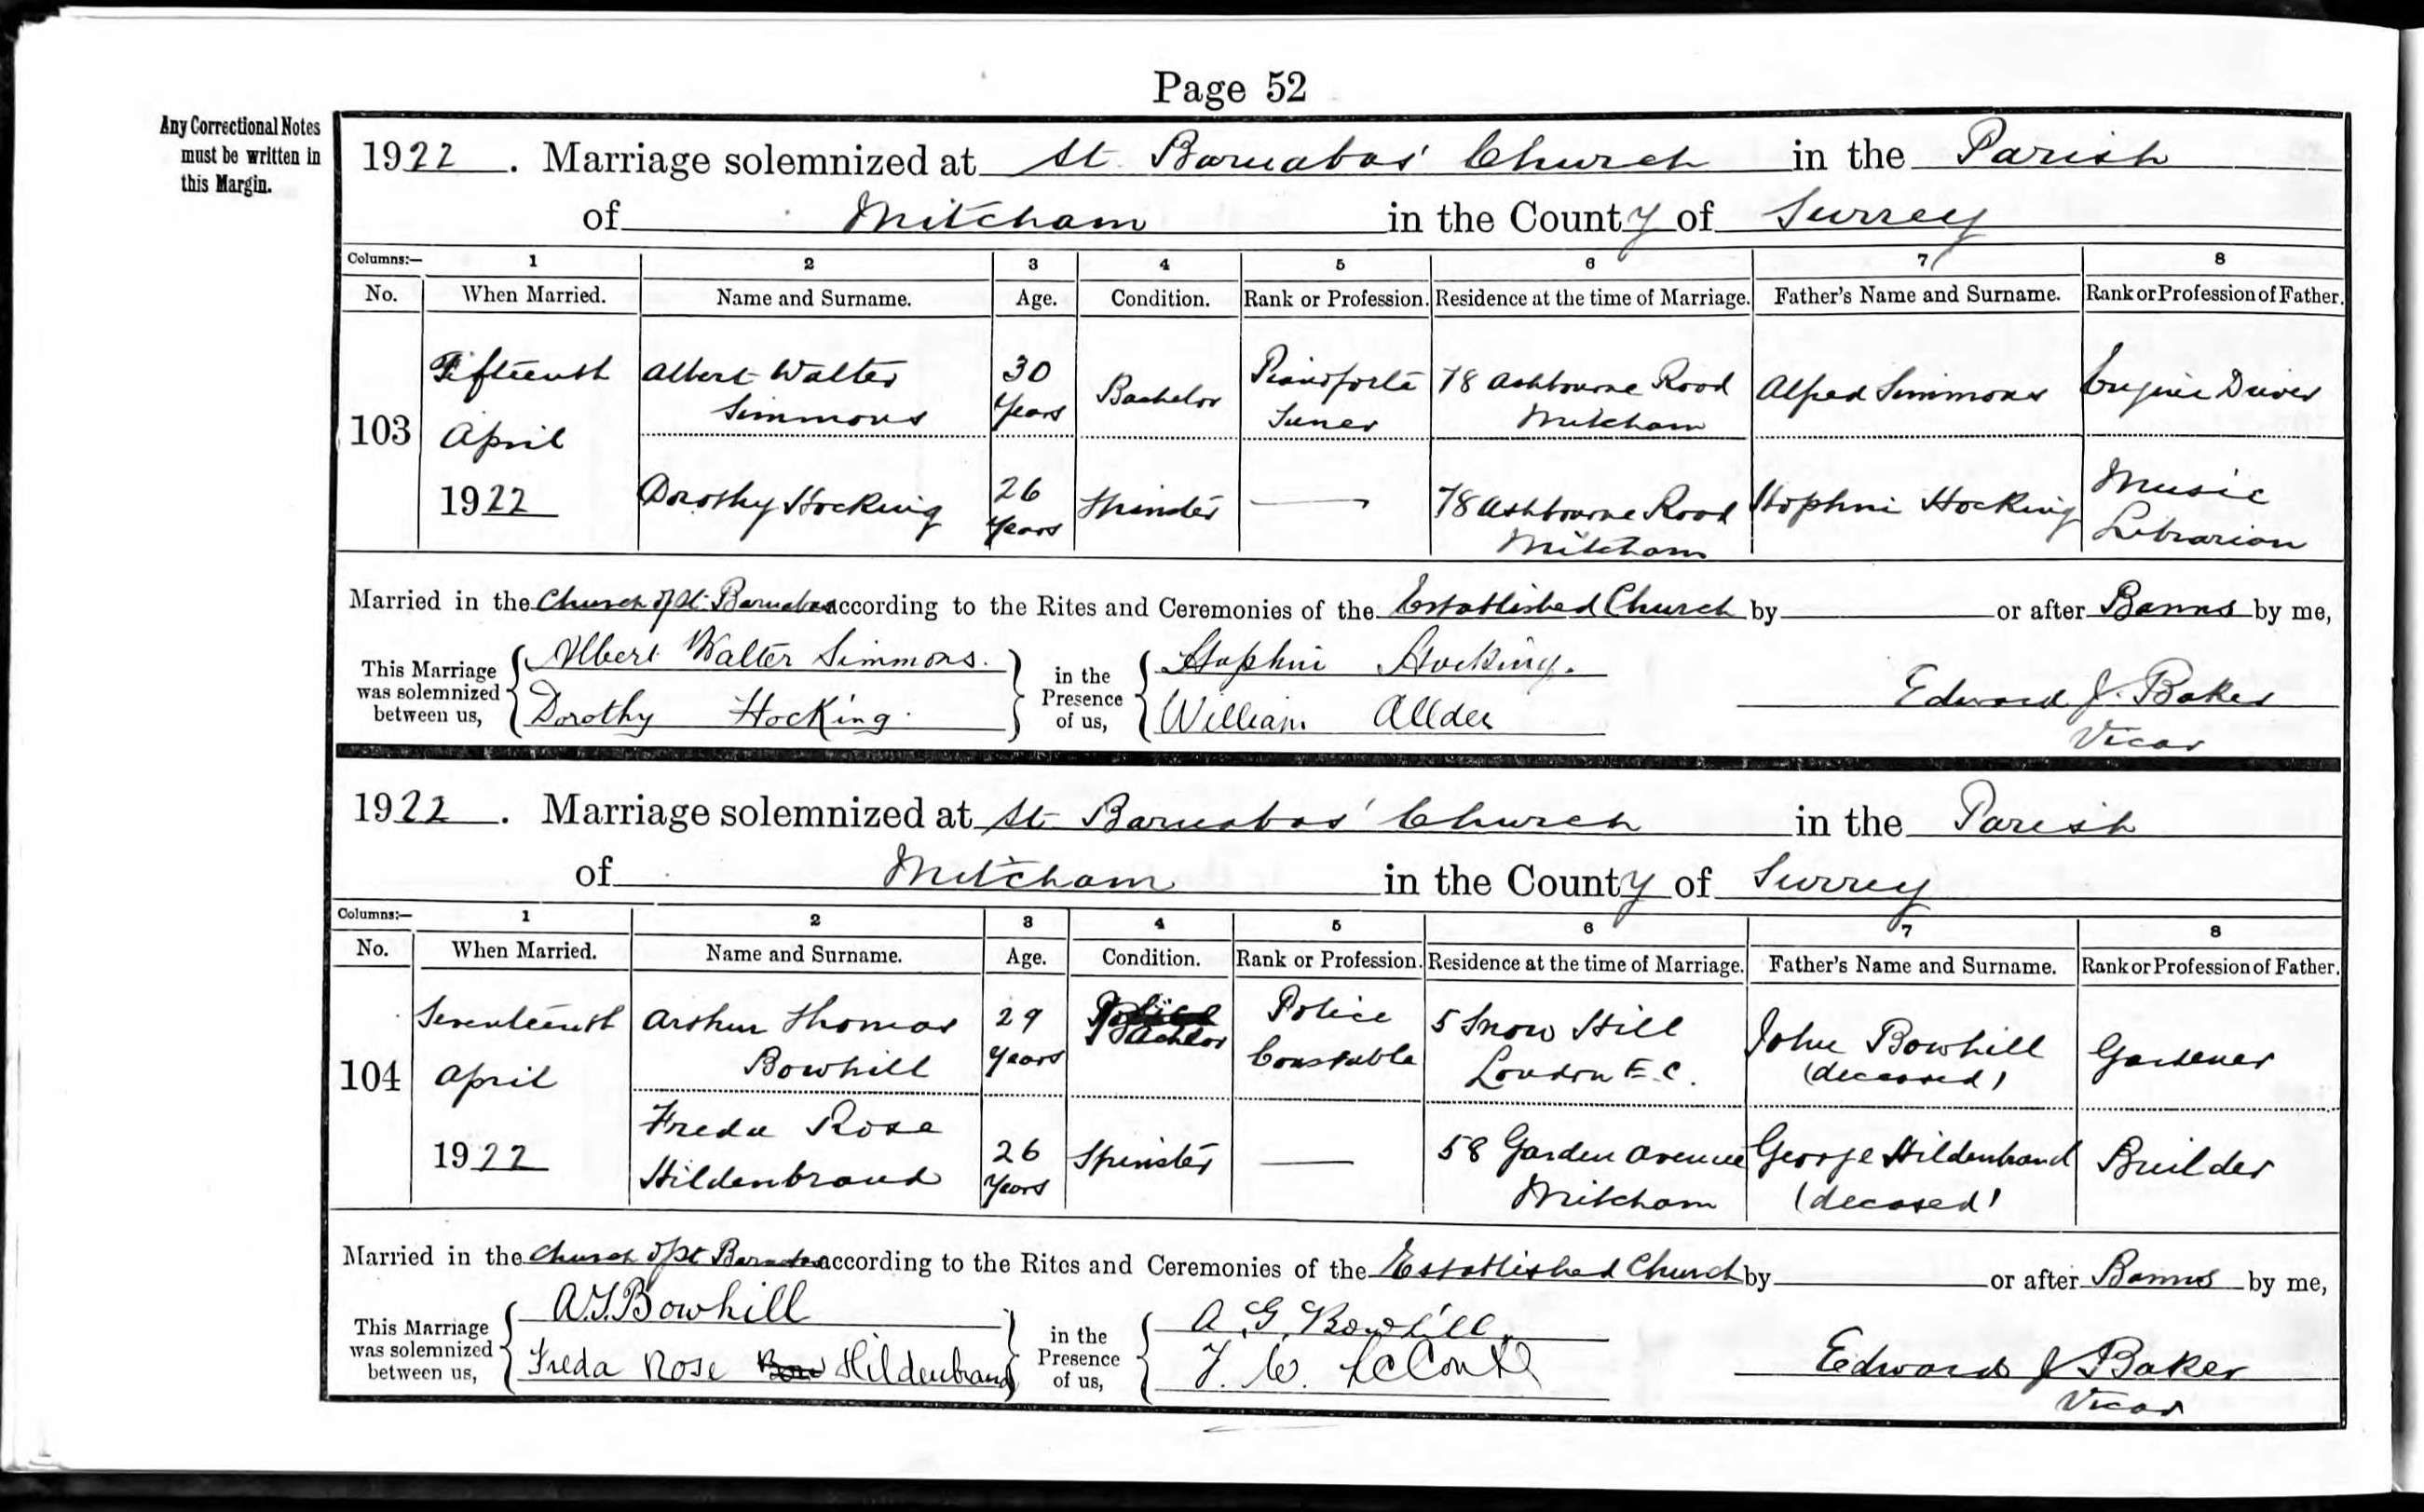 Page 52
Any Correctional Notes
must be written in
this Margin.
1922. Marriage solemnized at St. Barnabas' Church in the Parish
of Mitcham in the County of Surrey
Columns:— 1 2 3 4 5 6 7 8
No. When Married. Name and Surname. Age. Condition. Rank or Profession. Residence at the time of Marriage. Father's Name and Surname. Rank or Profession of Father.
103
Fifteenth
April
1922
Albert Walter
Simmons
30
Years
Bachelor
Pianoforte
Tuner
78 Ashbourne Road
Mitcham
Alfred Simmons
Engine Driver
Dorothy Hocking
26
Years
Spinster
—
78 Ashbourne Road
Mitcham
Hophni Hocking
Music
Librarian
Married in the Church of St. Barnabas according to the Rites and Ceremonies of the Established Church by or after Banns by me,
This Marriage
was solemnized
between us,
Albert Walter Simmons.
Dorothy Hocking.
in the
Presence
of us,
Hophni Hocking.
William Allder
Edward J. Baker
Vicar
1922. Marriage solemnized at St. Barnabas' Church in the Parish
of Mitcham in the County of Surrey
Columns:— 1 2 3 4 5 6 7 8
No. When Married. Name and Surname. Age. Condition. Rank or Profession. Residence at the time of Marriage. Father's Name and Surname. Rank or Profession of Father.
104
Seventeenth
April
1922
Arthur Thomas
Bowhill
29
Years
Bachelor
Police
Constable
5 Snow Hill
London E.C.
John Bowhill
(deceased)
Gardener
Freda Rose
Hildenbrand
26
Years
Spinster
—
58 Garden Avenue
Mitcham
George Hildenbrand
(deceased)
Builder
Married in the Church of St Barnabas according to the Rites and Ceremonies of the Established Church by or after Banns by me,
This Marriage
was solemnized
between us,
A.T. Bowhill
Freda Rose Hildenbrand
in the
Presence
of us,
A. G. Bowhill.
Edward J Baker
Vicar